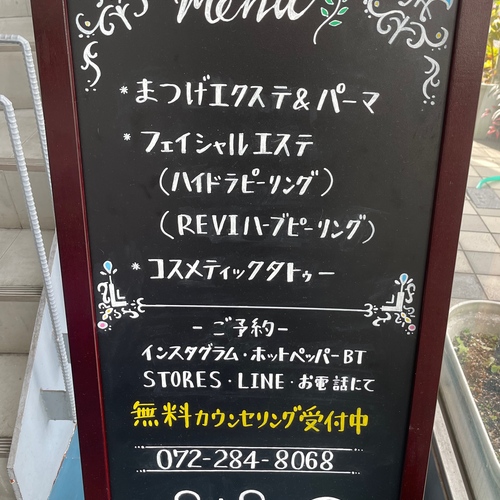 menu
*まつげエクステ&パーマ
*フェイシャルエステ
(ハイドラピーリング)
(REVIハーブピーリング)
*コスメティックタトゥー
-ご予約-
インスタグラム・ホットペッパーBT
STORES・LINE・お電話にて
無料カウンセリング受付中
072-284-8068